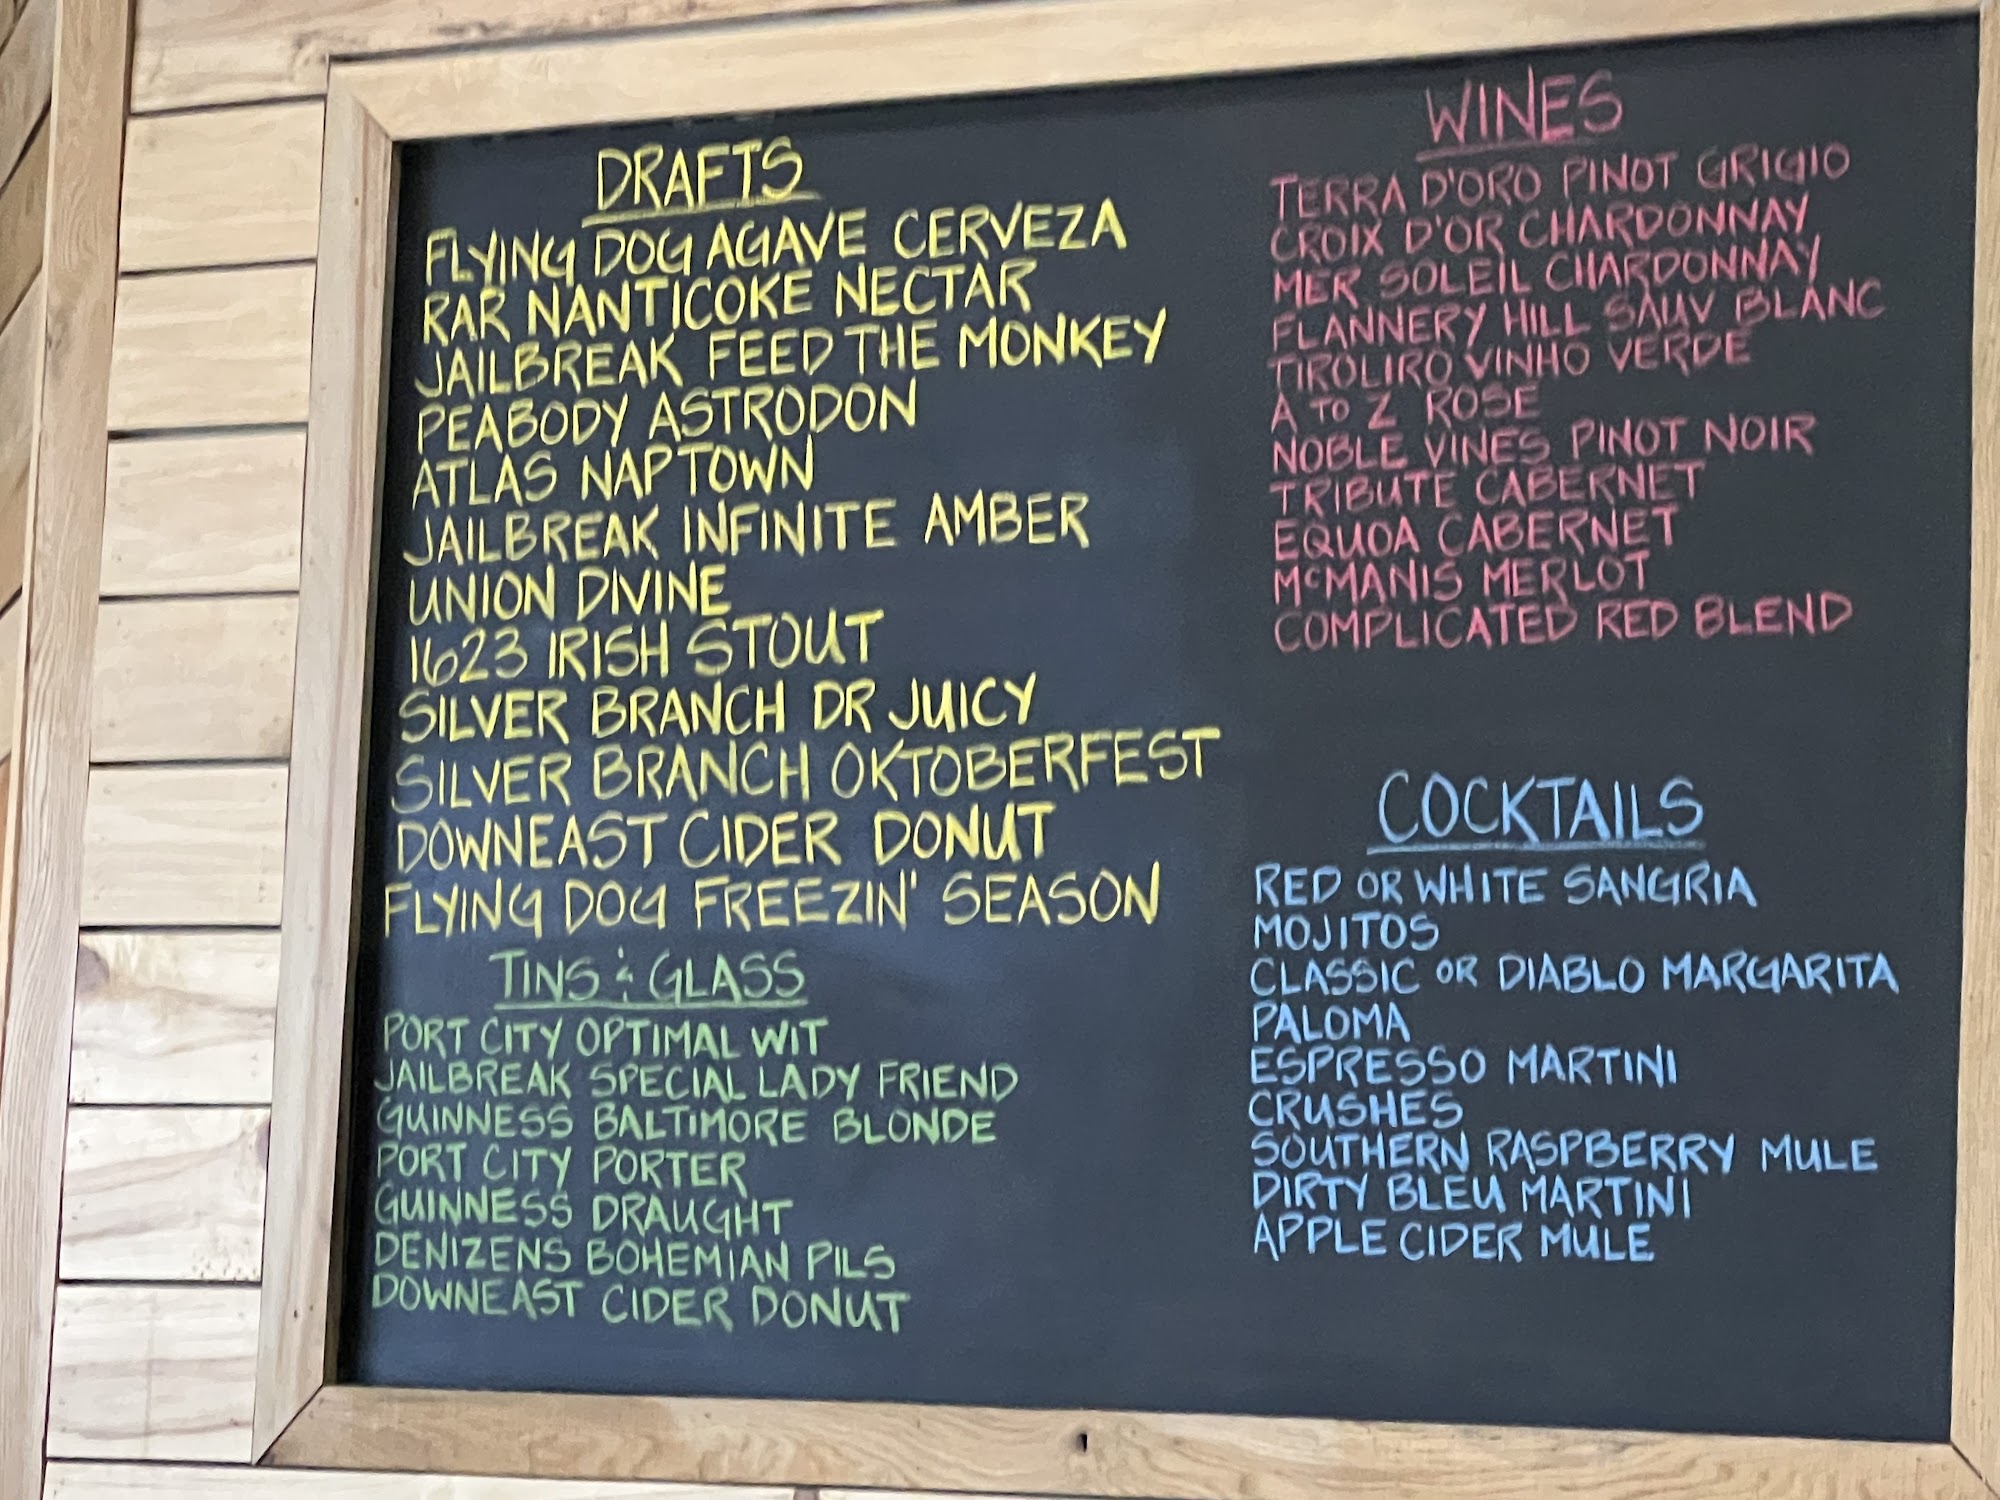 DRAFTS
FLYING DOG AGAVE CERVEZA
RAR NANTICOKE NECTAR
JAILBREAK FEED THE MONKEY
PEABODY ASTRODON
ATLAS NAPTOWN
JAILBREAK INFINITE AMBER
UNION DIVINE
1623 IRISH STOUT
SILVER BRANCH DR JUICY
SILVER BRANCH OKTOBERFEST
DOWNEAST CIDER DONUT
FLYING DOG FREEZIN' SEASON
TINS & GLASS
PORT CITY OPTIMAL WIT
JAILBREAK SPECIAL LADY FRIEND
GUINNESS BALTIMORE BLONDE
PORT CITY PORTER
GUINNESS DRAUGHT
DENIZENS BOHEMIAN PILS
DOWNEAST CIDER DONUT
WINES
TERRA D'ORO PINOT GRIGIO
CROIX D'OR CHARDONNAY
MER SOLEIL CHARDONNAY
FLANNERY HILL SAUV BLANC
TIROLIRO VINHO VERDE
A TO Z ROSE
NOBLE VINES PINOT NOIR
TRIBUTE CABERNET
EQUOA CABERNET
McMANIS MERLOT
COMPLICATED RED BLEND
COCKTAILS
RED OR WHITE SANGRIA
MOJITOS
CLASSIC OR DIABLO MARGARITA
PALOMA
ESPRESSO MARTINI
CRUSHES
SOUTHERN RASPBERRY MULE
DIRTY BLEU MARTINI
APPLE CIDER MULE